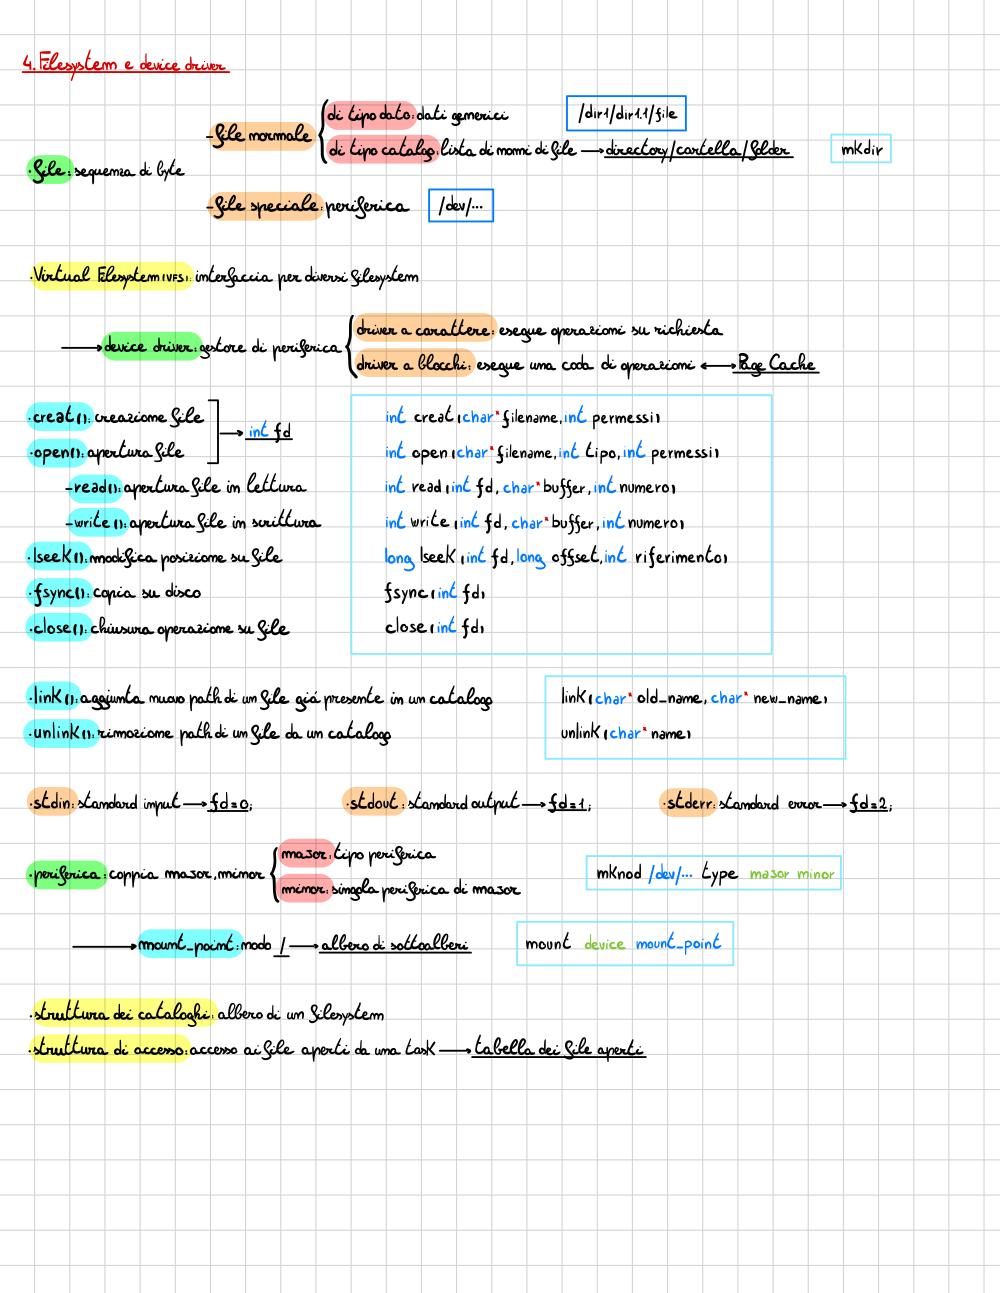 4. Filesystem e device driver
di tipo dato: dati generici /dir1/dir1.1/file
-file normale
di tipo catalog: lista di nomi di file → directory/cartella/folder mkdir
·file: sequenza di byte
-file speciale: periferica /dev/...
·Virtual Filesystem (VFS): interfaccia per diversi filesystem
driver a carattere: esegue operazioni su richiesta
→ device driver: gestore di periferica
driver a blocchi: esegue una coda di operazioni ↔ Page Cache
·creat(): creazione file int creat(char* filename, int permessi)
→ int fd
·open(): apertura file int open(char* filename, int tipo, int permessi)
-read(): apertura file in lettura int read(int fd, char* buffer, int numero)
-write(): apertura file in scrittura int write(int fd, char* buffer, int numero)
·lseek(): modifica posizione su file long lseek(int fd, long offset, int riferimento)
·fsync(): copia su disco fsync(int fd)
·close(): chiusura operazione su file close(int fd)
·link(): aggiunta nuovo path di un file giá presente in un catalogo link(char* old_name, char* new_name)
·unlink(): rimozione path di un file da un catalogo unlink(char* name)
·stdin: standard input → fd=0; ·stdout: standard output → fd=1; ·stderr: standard error → fd=2;
major: tipo periferica
·periferica: coppia major, minor mknod /dev/... type major minor
minor: singola periferica di major
→ mount_point: nodo / → albero di sottoalberi mount device mount_point
·struttura dei cataloghi: albero di un filesystem
·struttura di accesso: accesso ai file aperti da una task → tabella dei file aperti